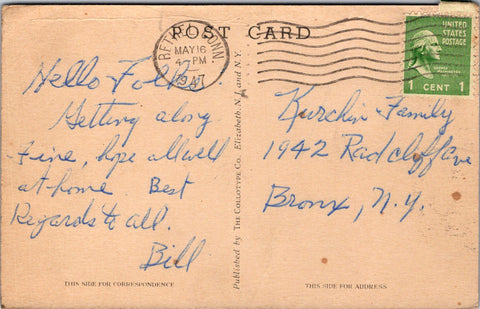 POST CARD
CONN.
MAY 16
4 - PM
1947
UNITED
STATES
POSTAGE
1 CENT 1
Hello Folks.
Getting along
fine, hope all well
at home Best
Regards to all.
Bill
Published by The Collotype Co., Elizabeth, N. J. and N. Y.
Kurchin Family
1942 Radcliff Ave
Bronx, N.Y.
THIS SIDE FOR CORRESPONDENCE
THIS SIDE FOR ADDRESS